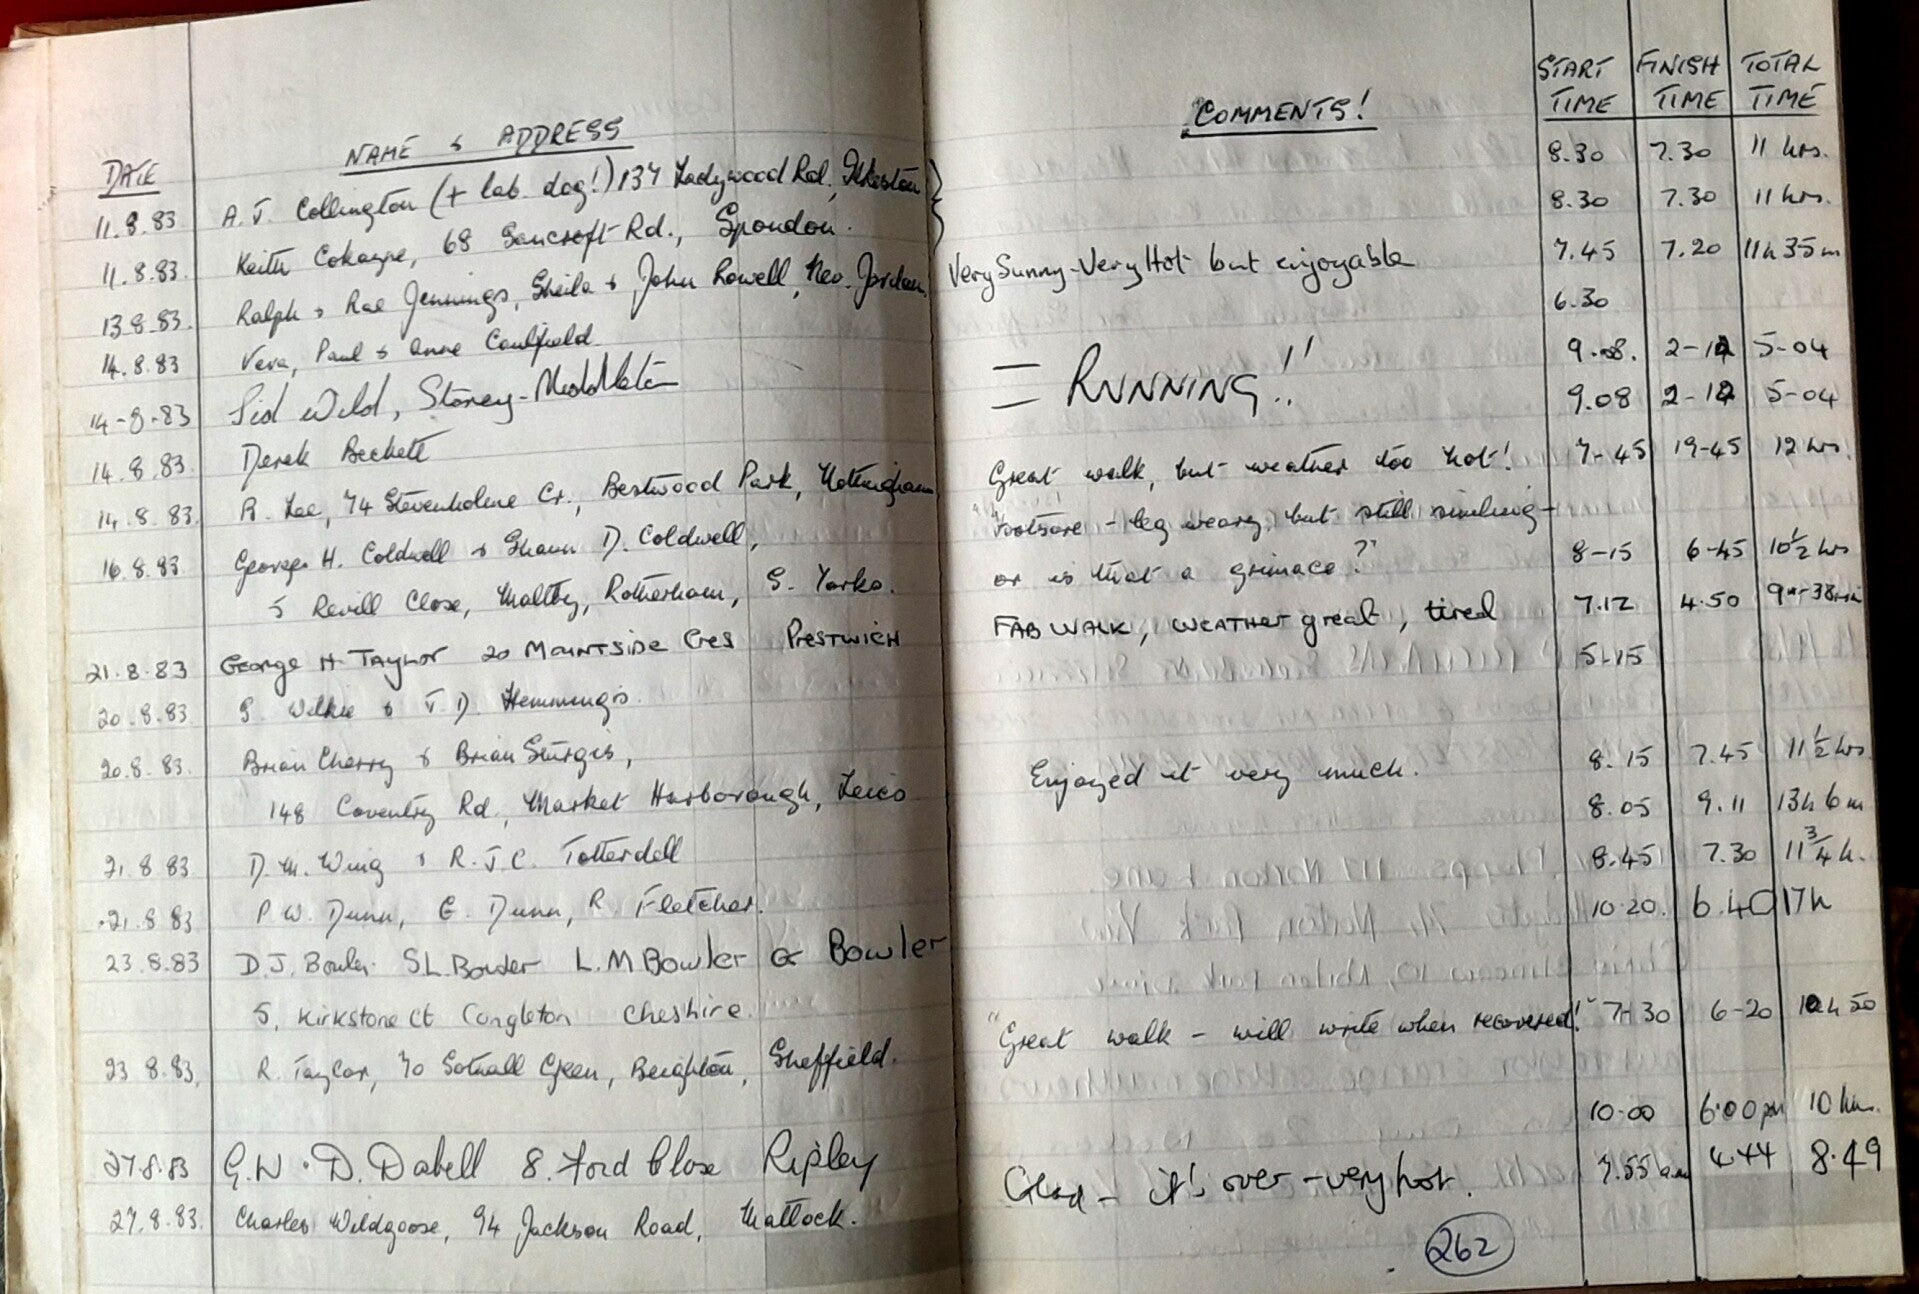 DATE
NAME & ADDRESS
11.8.83 A. J. Collington (+ lab. dog!) 134 Ladywood Rd, Ilkeston
11.8.83. Keith Cokayne, 68 Sancroft Rd., Spondon.
13.8.83. Ralph & Rae Jennings, Sheila & John Rowell, Nev. Jordan
14.8.83 Vera, Paul & Anne Caulfield
14-8-83 Sid Wild, Stoney-Middleton
14.8.83. Derek Beckett
14.8.83. R. Lee, 74 Stevenholme Cr., Bestwood Park, Nottingham
16.8.83. George H. Coldwell & Shaun D. Coldwell,
5 Revill Close, Maltby, Rotherham, S. Yorks.
21.8.83 George H. Taylor 20 Mountside Cres Prestwich
20.8.83 S. Wilkie & J D. Hemmings.
20.8.83. Brian Cherry & Brian Sturgis,
148 Coventry Rd, Market Harborough, Leics
21.8.83 D. M. Wing & R. J. C. Totterdell
21.8.83 P. W. Dunn, E. Dunn, R. Fletcher.
23.8.83 D.J. Bowler SL. Bowler L.M Bowler G Bowler
5, Kirkstone Ct Congleton Cheshire.
23.8.83, R. Taylor, 70 Sothall Green, Beighton, Sheffield.
27.8.83 G.W. D. Dabell 8. Ford Close Ripley
27.8.83. Charles Wildgoose, 94 Jackson Road, Matlock.
COMMENTS!
START TIME FINISH TIME TOTAL TIME
8.30 7.30 11 hrs.
8.30 7.30 11 hrs.
Very Sunny - Very Hot but enjoyable 7.45 7.20 11h 35m
6.30
9.08. 2-12 5-04
= RUNNING!! 9.08 2-12 5-04
Great walk, but weather too hot! 7-45 19-45 12 hrs.
"Footsore - leg weary, but still smiling -
or is that a grimace?" 8-15 6-45 10½ hrs
FAB WALK, WEATHER great, tired 7.12 4.50 9hr-38min
5.15
Enjoyed it very much. 8.15 7.45 11½ hrs
8.05 9.11 13h 6m
8.45 7.30 11¾ h.
10.20. 6.40 17h
"Great walk - will write when recovered!" 7-30 6-20 10h 50
10.00 6.00pm 10 hrs.
Glad - it's over - very hot. 7.55 a.m 4.44 8.49
262